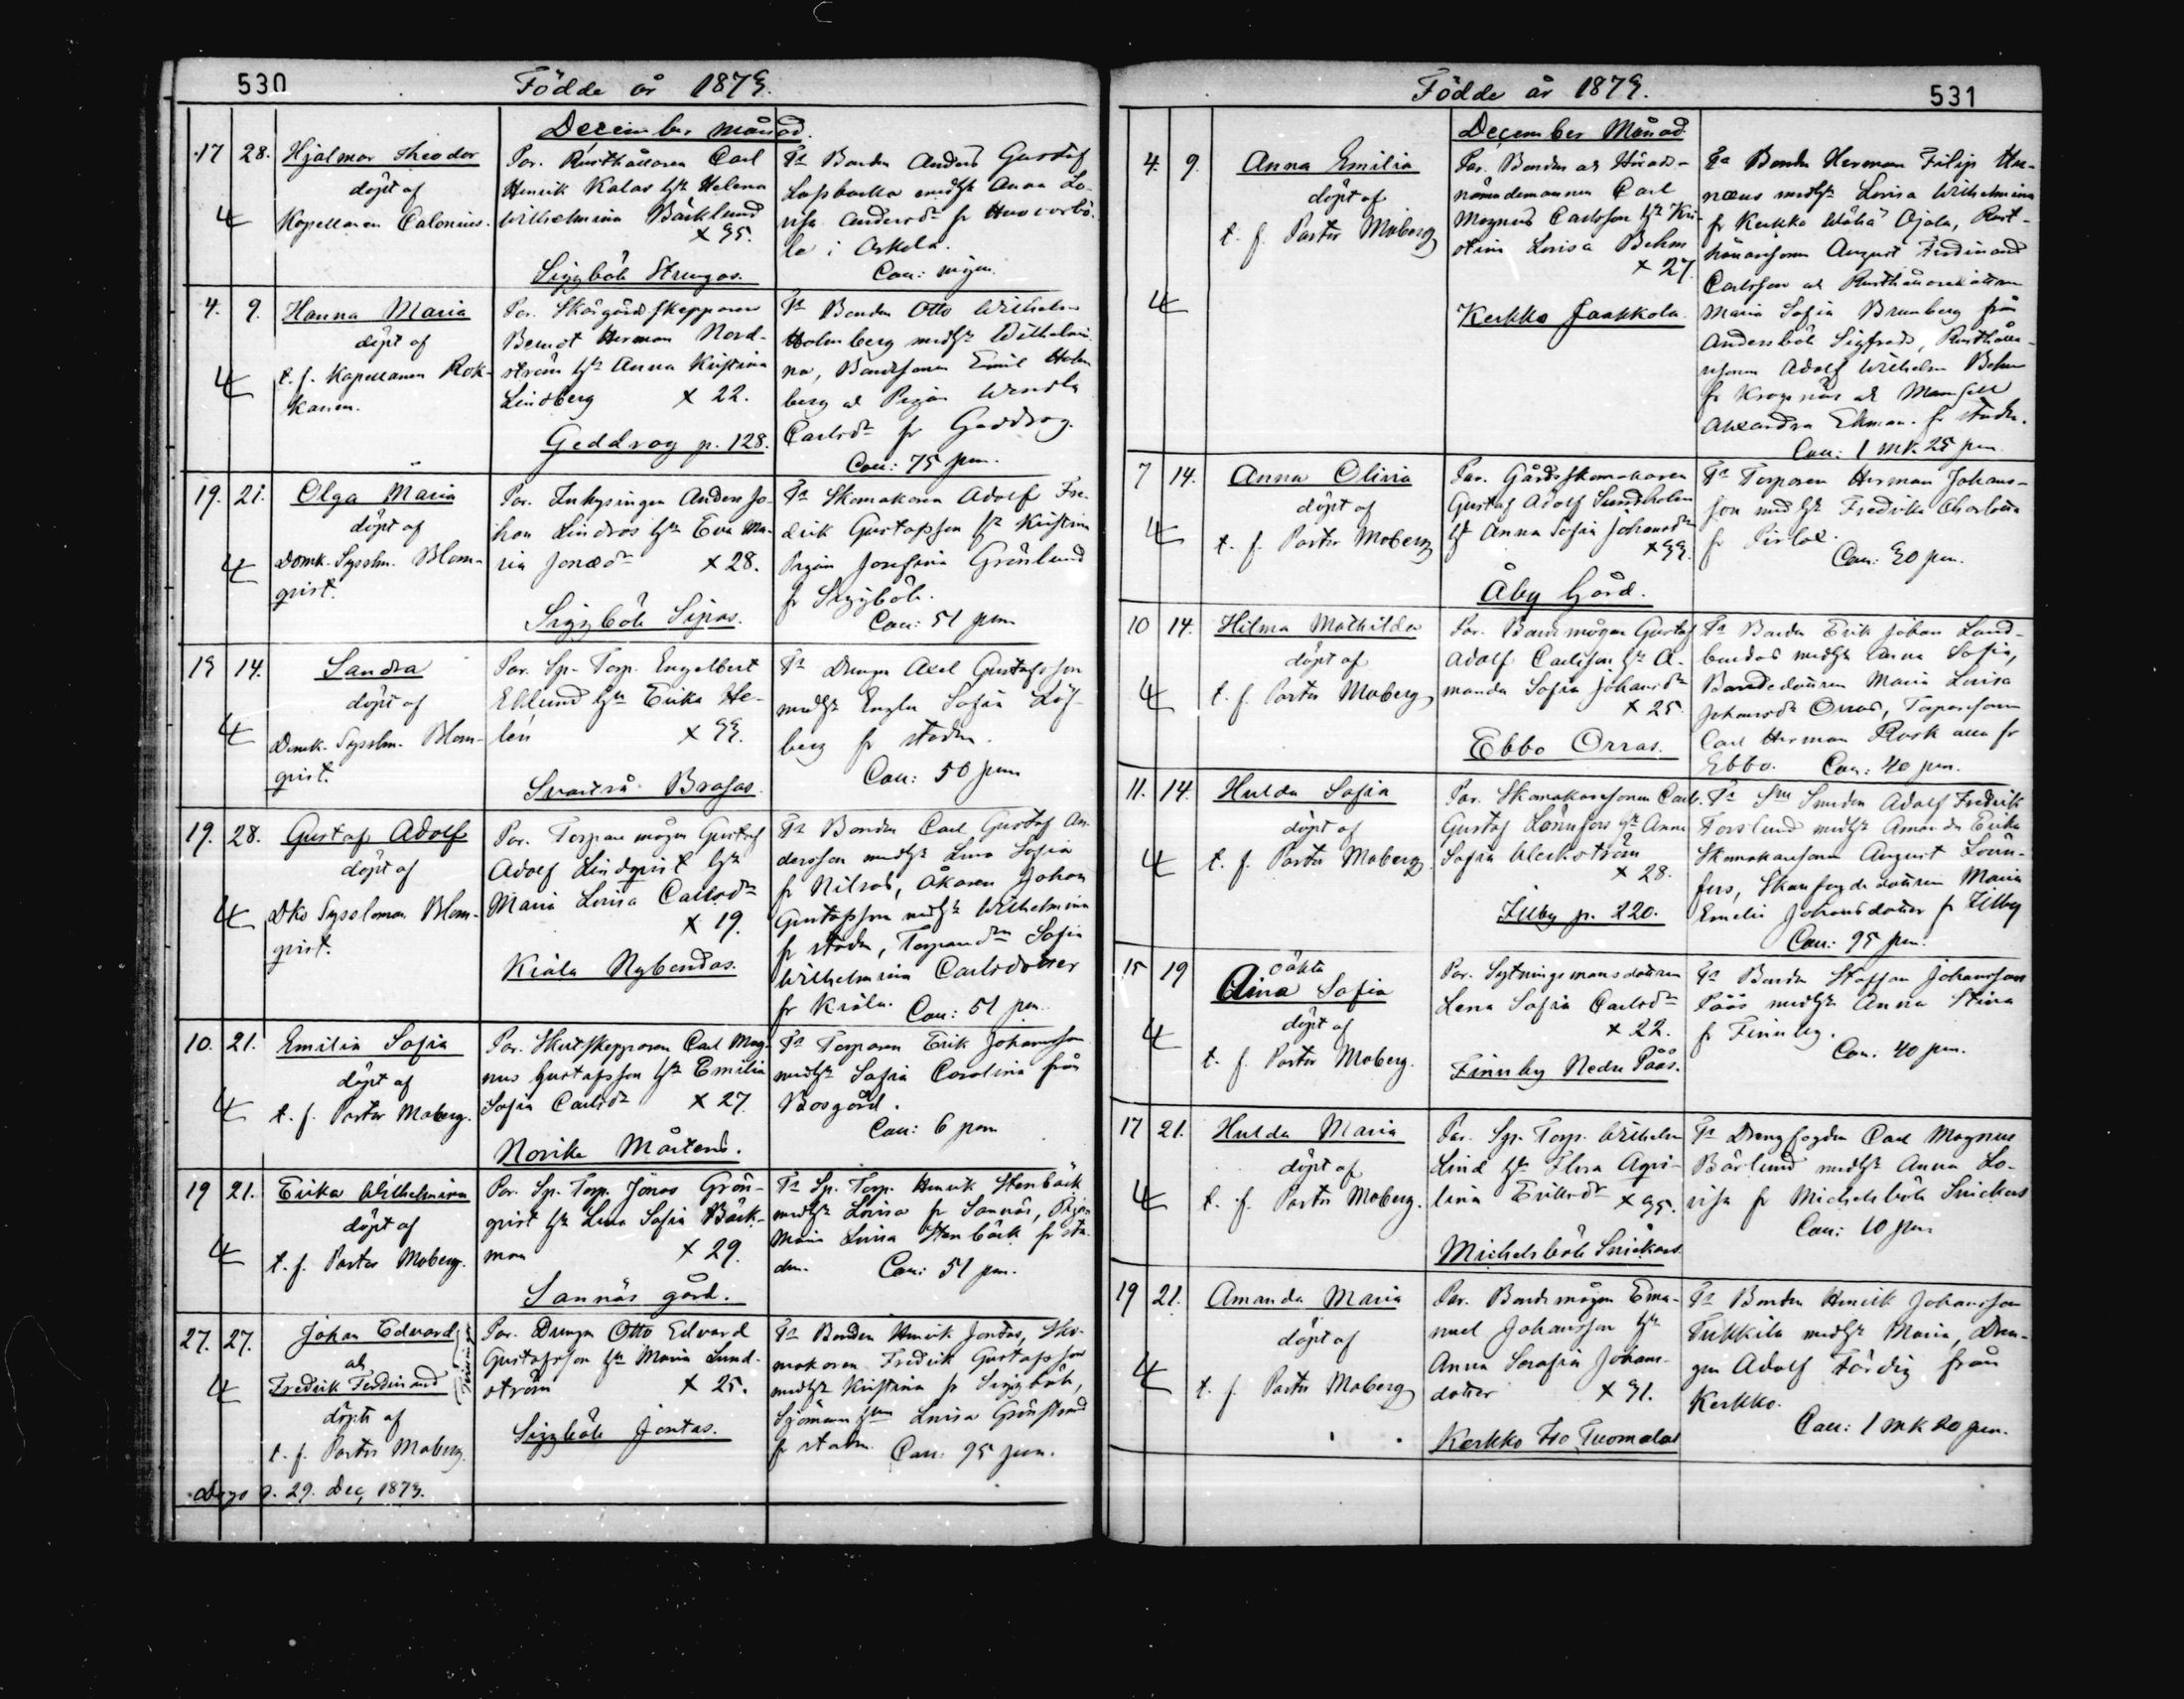 530
Födde år 1873.
December månad.
17 28. Hjalmar Theodor
döpt af
Kapellanen Calonius.
Par. Rusthållaren Carl
Henrik Kalas hu Helena
Wilhelmina Bäcklund
x 35.
Siggböle Strengas.
Fa Bonden Anders Gustaf
Lassbacka medh Anna Lo-
visa Andersdr fr
la i Askola.
Coll: ingen.
4. 9. Hanna Maria
döpt af
t. f. Kapellanen Rok-
kanen.
Par. Skärgårdsskepparen
Berndt Herman Nord-
ström hu Anna Kristina
Lindberg x 22.
Geddrag p. 128.
Fa Bonden Otto Wilhelm
Holmberg medh Wilhelmi-
na, Bondesonen Emil Holm
berg ch Pigan Wendla
Carlsdr fr Geddrag.
Coll: 75 pen.
19. 21. Olga Maria
döpt af
Domk. Sysslm. Blom-
qvist.
Par. Inhysingen Anders Jo-
han Lindros hu Eva Ma-
ria Jonædr x 28.
Siggböle Sipas.
Fa Skomakaren Adolf Fre-
drik Gustafsson hu Kristina
Pigan Josefina Grönlund
fr Siggböle.
Coll: 51 pen
19 14. Sandra
döpt af
Domk. Sysslm. Blom-
qvist.
Par. Sp. Torp. Engelbert
Eklund hu Erika He-
lén x 33.
Svartså Brasas.
Fa Drengen Axel Gustafsson
medh Engla Sofia Löf-
berg fr staden.
Coll: 50 pen
19. 28. Gustaf Adolf
döpt af
Dko Syssloman Blom-
qvist.
Par. Torpare mågen Gustaf
Adolf Lindqvist hu
Maria Lovisa Carlsdr
x 19.
Kiala Nybondas.
Fa Bonden Carl Gustaf An-
dersson medh Lena Sofia
fr Nilsas, Åkaren Johan
Gustafsson medh Wilhelmina
fr staden, Torparedn Sofia
Wilhelmina Carlsdotter
fr Kiala. Coll: 51 pen.
10. 21. Emilia Sofia
döpt af
t. f. Pastor Moberg.
Par. Skutskepparen Carl Mag-
nus Gustafsson hu Emilia
Sofia Carlsdr x 27.
Norike Mårtens.
Fa Torparen Erik Johansson
medh Sofia Carolina från
Bosgård.
Coll: 6 pen
19 21. Erika Wilhelmina
döpt af
t. f. Pastor Moberg.
Par. Sp. Torp. Jonas Grön-
qvist hu Lena Sofia Bäck-
man x 29.
Sannäs gård.
Fa Sp. Torp. Henrik Stenbäck
medh Lovisa fr Sannäs, Pigan
Maria Lovisa Stenbäck fr sta-
den. Coll: 51 pen.
27. 27. Johan Edvard
ch
Fredrik Ferdinand
döpte af
t. f. Pastor Moberg.
Tvillingar
Par. Drengen Otto Edvard
Gustafsson hu Maria Lund-
ström x 25.
Siggböle Jontas.
Fa Bonden Henrik Jontas, Sko-
makaren Fredrik Gustafsson
medh Kristina fr Siggböle,
Sjöman hun Lovisa Grönstrand
fr staden. Coll: 95 pen.
d. 29. Dec, 1873.
Födde år 1873.
531
December Månad
4. 9. Anna Emilia
döpt af
t. f. Pastor Moberg
Par. Bonden ch Härads-
nämndemannen Carl
Magnus Carlsson hu Kri-
stina Lovisa Behm
x 27.
Kerkko Jaakkola.
Fa Bonden Herman Filip
medh Lovisa Wilhelmina
fr Kerkko Ojala, Rust-
hållaresonen August Ferdinand
Carlsson ch Rusthållaredottren
Maria Sofia Brunberg från
Andersböle Sigfreds, Rusthålla-
resonen Adolf Wilhelm Behm
fr Krogsnäs ch Mamsell
Alexandra Ekman fr staden.
Coll: 1 mk. 25 pen.
7 14. Anna Olivia
döpt af
t. f. Pastor Moberg
Par. Gårdsskomakaren
Gustaf Adolf Sundholm
hu Anna Sofia Johansdr
x 33.
Åby Gård.
Fa Torparen Herman Johans-
son medh Fredrika Charlotta
fr Pirlax.
Coll: 30 pen.
10 14. Hilma Mathilda
döpt af
t. f. Pastor Moberg
Par. Bondemågen Gustaf
Adolf Carlsson hu A-
manda Sofia Johansdr
x 25.
Ebbo Orras.
Fa Bonden Erik Johan Land-
bondas medh Anna Sofia,
Bondedottren Maria Lovisa
Johansdr Orras, Torparesonen
Carl Herman Rosk alla fr
Ebbo. Coll: 40 pen.
11. 14. Hulda Sofia
döpt af
t. f. Pastor Moberg.
Par. Skomakaresonen Carl
Gustaf Lönnfors hu Anna
Sofia Weckström
x 28.
Illby p. 220.
Fa Smeden Adolf Fredrik
Forslund medh Amanda Erika
Skomakaresonen August Lönn-
fors, Skogsfogdedottren Maria
Emelie Johansdotter fr Illby
Coll: 95 pen.
15 19 oäkta
Aina Sofia
döpt af
t. f. Pastor Moberg.
Par. Sytningsmansdottren
Lena Sofia Carlsdr
x 22.
Finnby Nedre Pääs.
Fa Bonden Staffan Johansson
Pääs medh Anna Stina
fr Finnby.
Coll. 40 pen.
17 21. Hulda Maria
döpt af
t. f. Pastor Moberg.
Par. Sp. Torp. Wilhelm
Lind hu Flora Agri-
lina Eriksdr x 35.
Michelsböle Snickars
Fa Drengfogden Carl Magnus
Bärlund medh Anna Lo-
visa fr Michelsböle Snickars
Coll: 10 pen
19 21. Amanda Maria
döpt af
t. f. Pastor Moberg
Par. Bondemågen Ema-
nuel Johansson hu
Anna Serafia Johans-
dotter x 31.
Kerkko Iso Tuomalas
Fa Bonden Henrik Johansson
Tukkila medh Maria, Dren-
gen Adolf Färdig från
Kerkko.
Coll: 1 mk 20 pen.